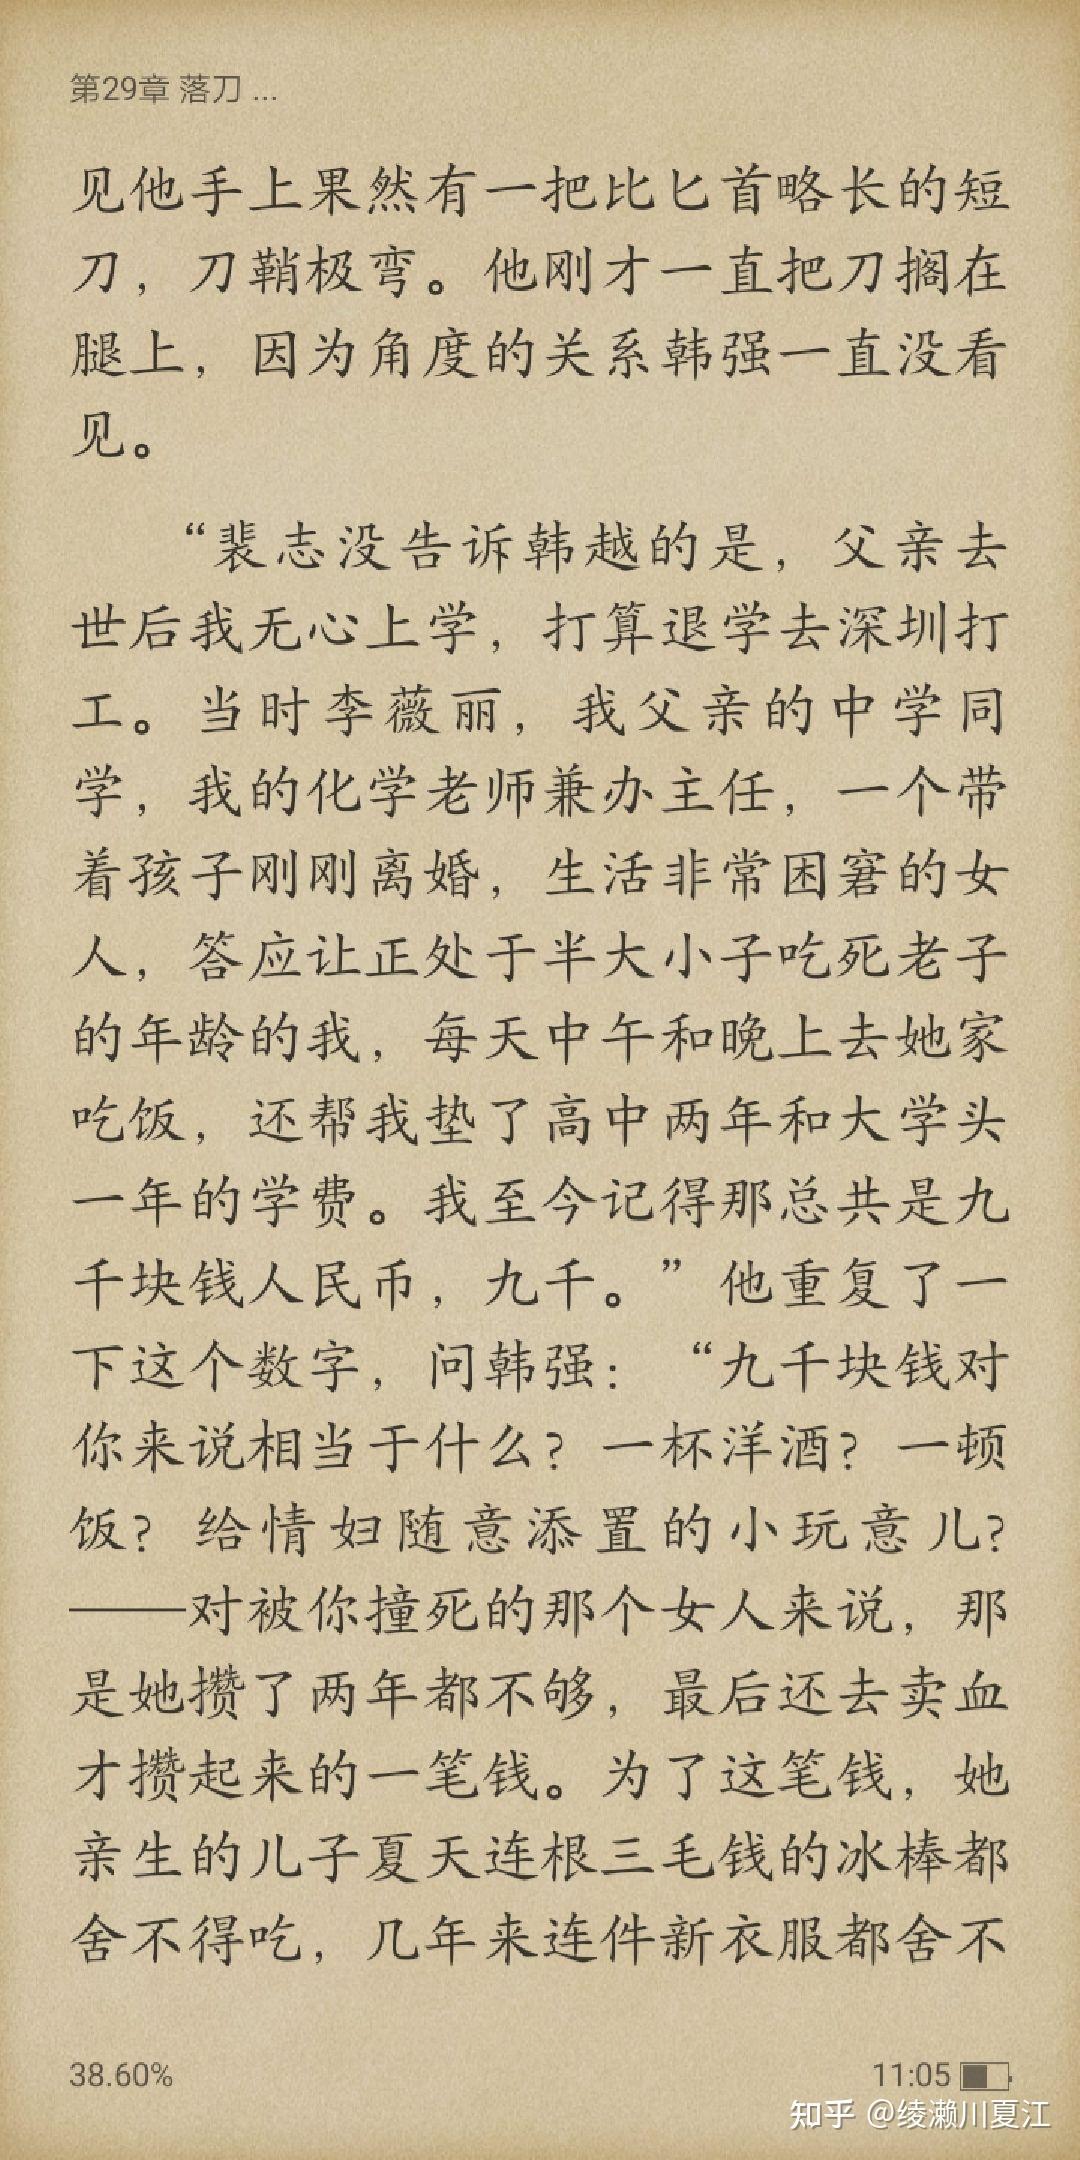 第29章 落刀 ...
见他手上果然有一把比匕首略长的短
刀，刀鞘极弯。他刚才一直把刀搁在
腿上，因为角度的关系韩强一直没看
见。
“裴志没告诉韩越的是，父亲去
世后我无心上学，打算退学去深圳打
工。当时李薇丽，我父亲的中学同
学，我的化学老师兼办主任，一个带
着孩子刚刚离婚，生活非常困窘的女
人，答应让正处于半大小子吃死老子
的年龄的我，每天中午和晚上去她家
吃饭，还帮我垫了高中两年和大学头
一年的学费。我至今记得那总共是九
千块钱人民币，九千。”他重复了一
下这个数字，问韩强：“九千块钱对
你来说相当于什么？一杯洋酒？一顿
饭？给情妇随意添置的小玩意儿？
——对被你撞死的那个女人来说，那
是她攒了两年都不够，最后还去卖血
才攒起来的一笔钱。为了这笔钱，她
亲生的儿子夏天连根三毛钱的冰棒都
舍不得吃，几年来连件新衣服都舍不
38.60%
11:05
知乎 @绫濑川夏江